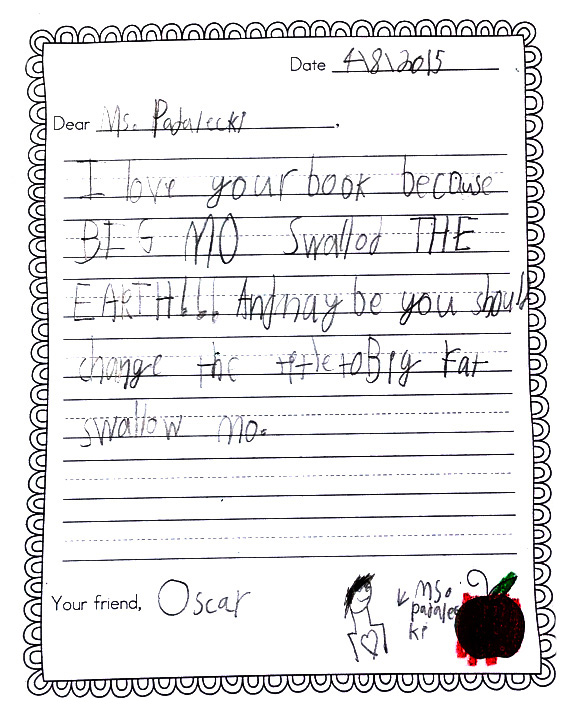 Date 4\8\2015
Dear Ms. Padalecki,
I love your book because
BIG MO Swallod THE
EARTH!!! And may be you should
change the title to Big Fat
swallow Mo.
Your friend, Oscar
Ms.
padalec
ki